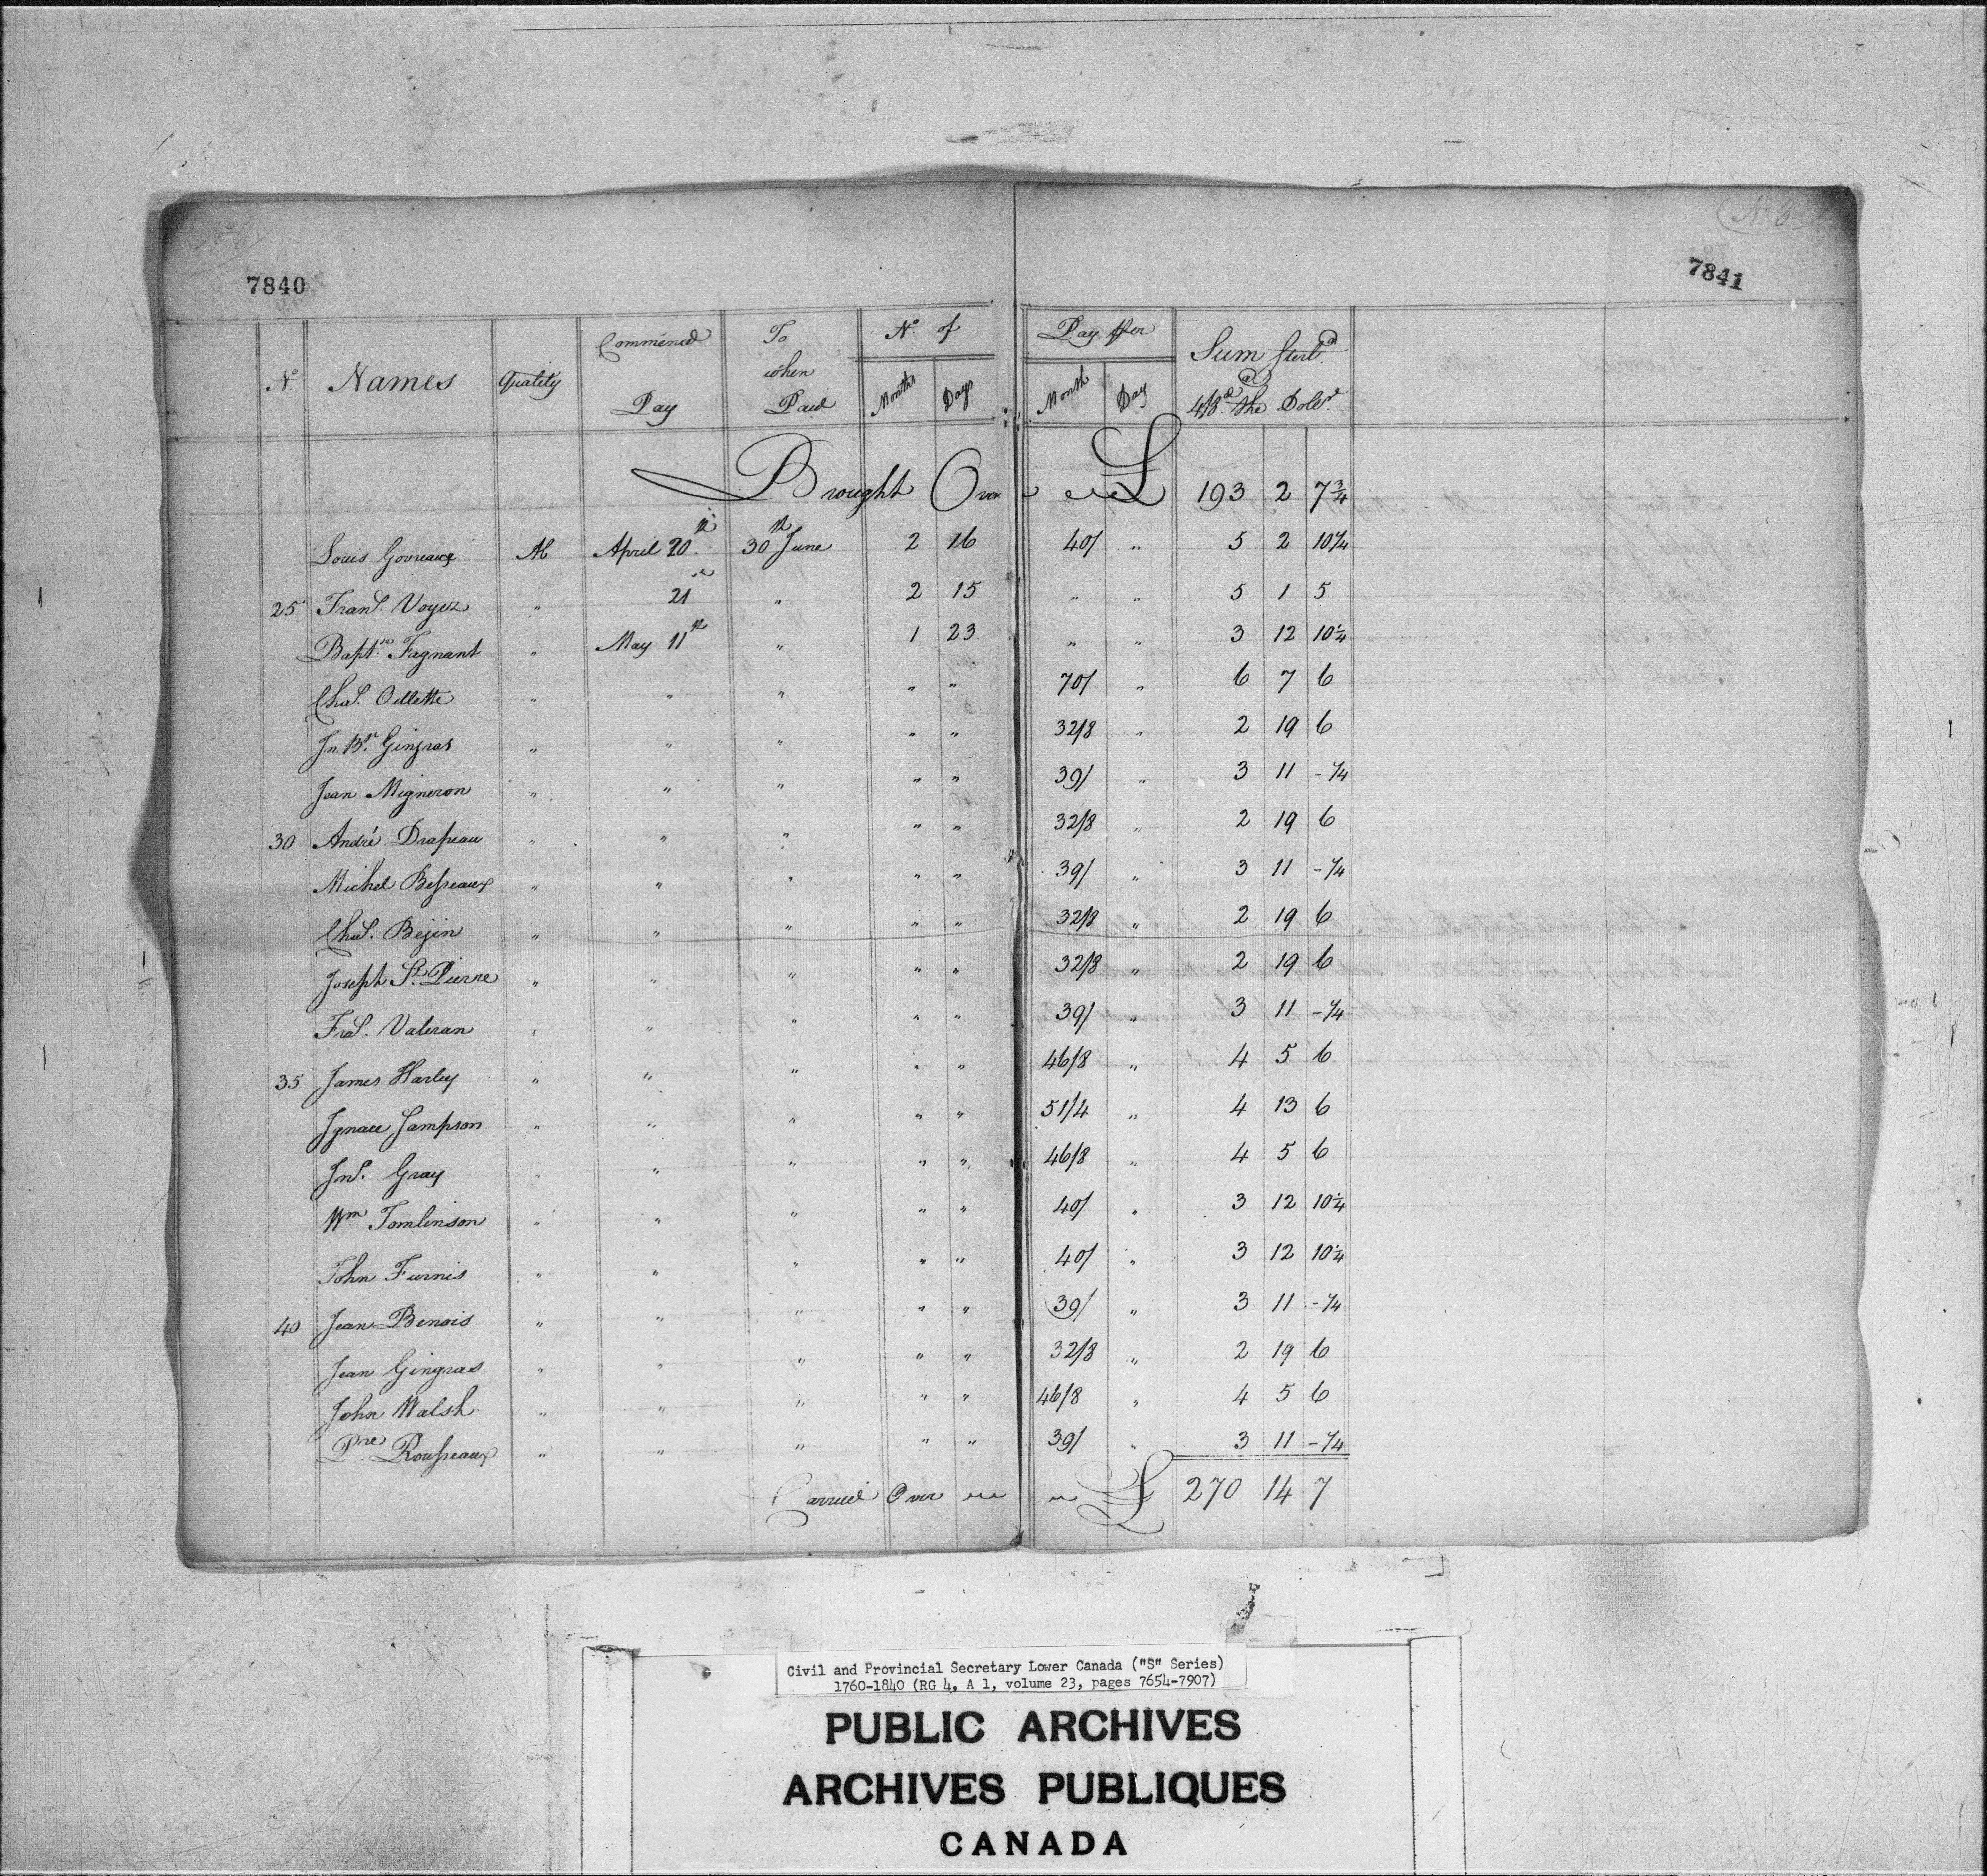 No 6 No 6
7840 7841
No. Names Quality Commenced Pay To when Paid No. of Months Days Pay Per Month Day Sum Sterl.g @ 4/8d. the Doll.r
Brought Over £ 193 2 7 3/4
Louis Govreaux M April 20th 30th June 2 16 40/ " 5 2 10 1/4
25 Frans. Voyer " 21st " 2 15 " " 5 1 5
Baptte Fagnant " May 11th " 1 23 " " 3 12 10 1/4
Chas. Oellette " " " " " 70/ " 6 7 6
Jn. Bte. Gingras " " " " " 32/8 " 2 19 6
Jean Migneron " " " " " 39/ " 3 11 - 1/4
30 André Drapeau " " " " " 32/8 " 2 19 6
Michel Besseaux " " " " " 39/ " 3 11 - 1/4
Chas. Bejin " " " " " 32/8 " 2 19 6
Joseph St. Pierre " " " " " 32/8 " 2 19 6
Fras. Valeran " " " " " 39/ " 3 11 - 1/4
35 James Harley " " " " " 46/8 " 4 5 6
Ignace Sampson " " " " " 51/4 " 4 13 6
Jns. Gray " " " " " 46/8 " 4 5 6
Wm Tomlinson " " " " " 40/ " 3 12 10 1/4
John Furnis " " " " " 40/ " 3 12 10 1/4
40 Jean Benois " " " " " 39/ " 3 11 - 1/4
Jean Gingras " " " " " 32/8 " 2 19 6
John Walsh " " " " " 46/8 " 4 5 6
Prre Rousseaux " " " " " 39/ " 3 11 - 1/4
Carried Over £ 270 14 7
Civil and Provincial Secretary Lower Canada ("S" Series)
1760-1840 (RG 4, A 1, volume 23, pages 7654-7907)
PUBLIC ARCHIVES
ARCHIVES PUBLIQUES
CANADA